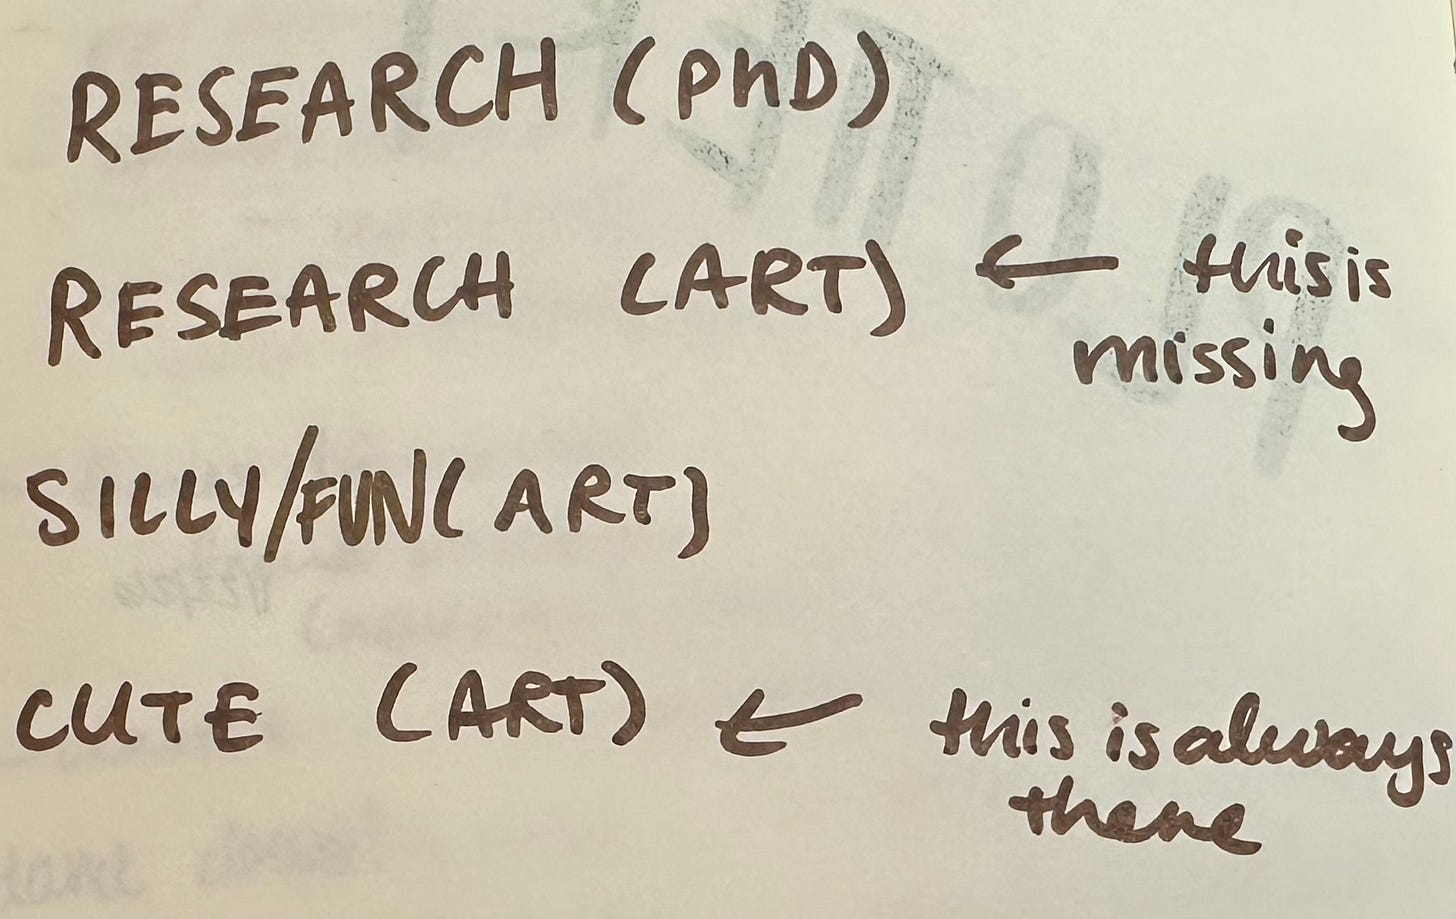 RESEARCH (PhD)
RESEARCH (ART) ← this is
missing
SILLY/FUN (ART)
CUTE (ART) ← this is always
there